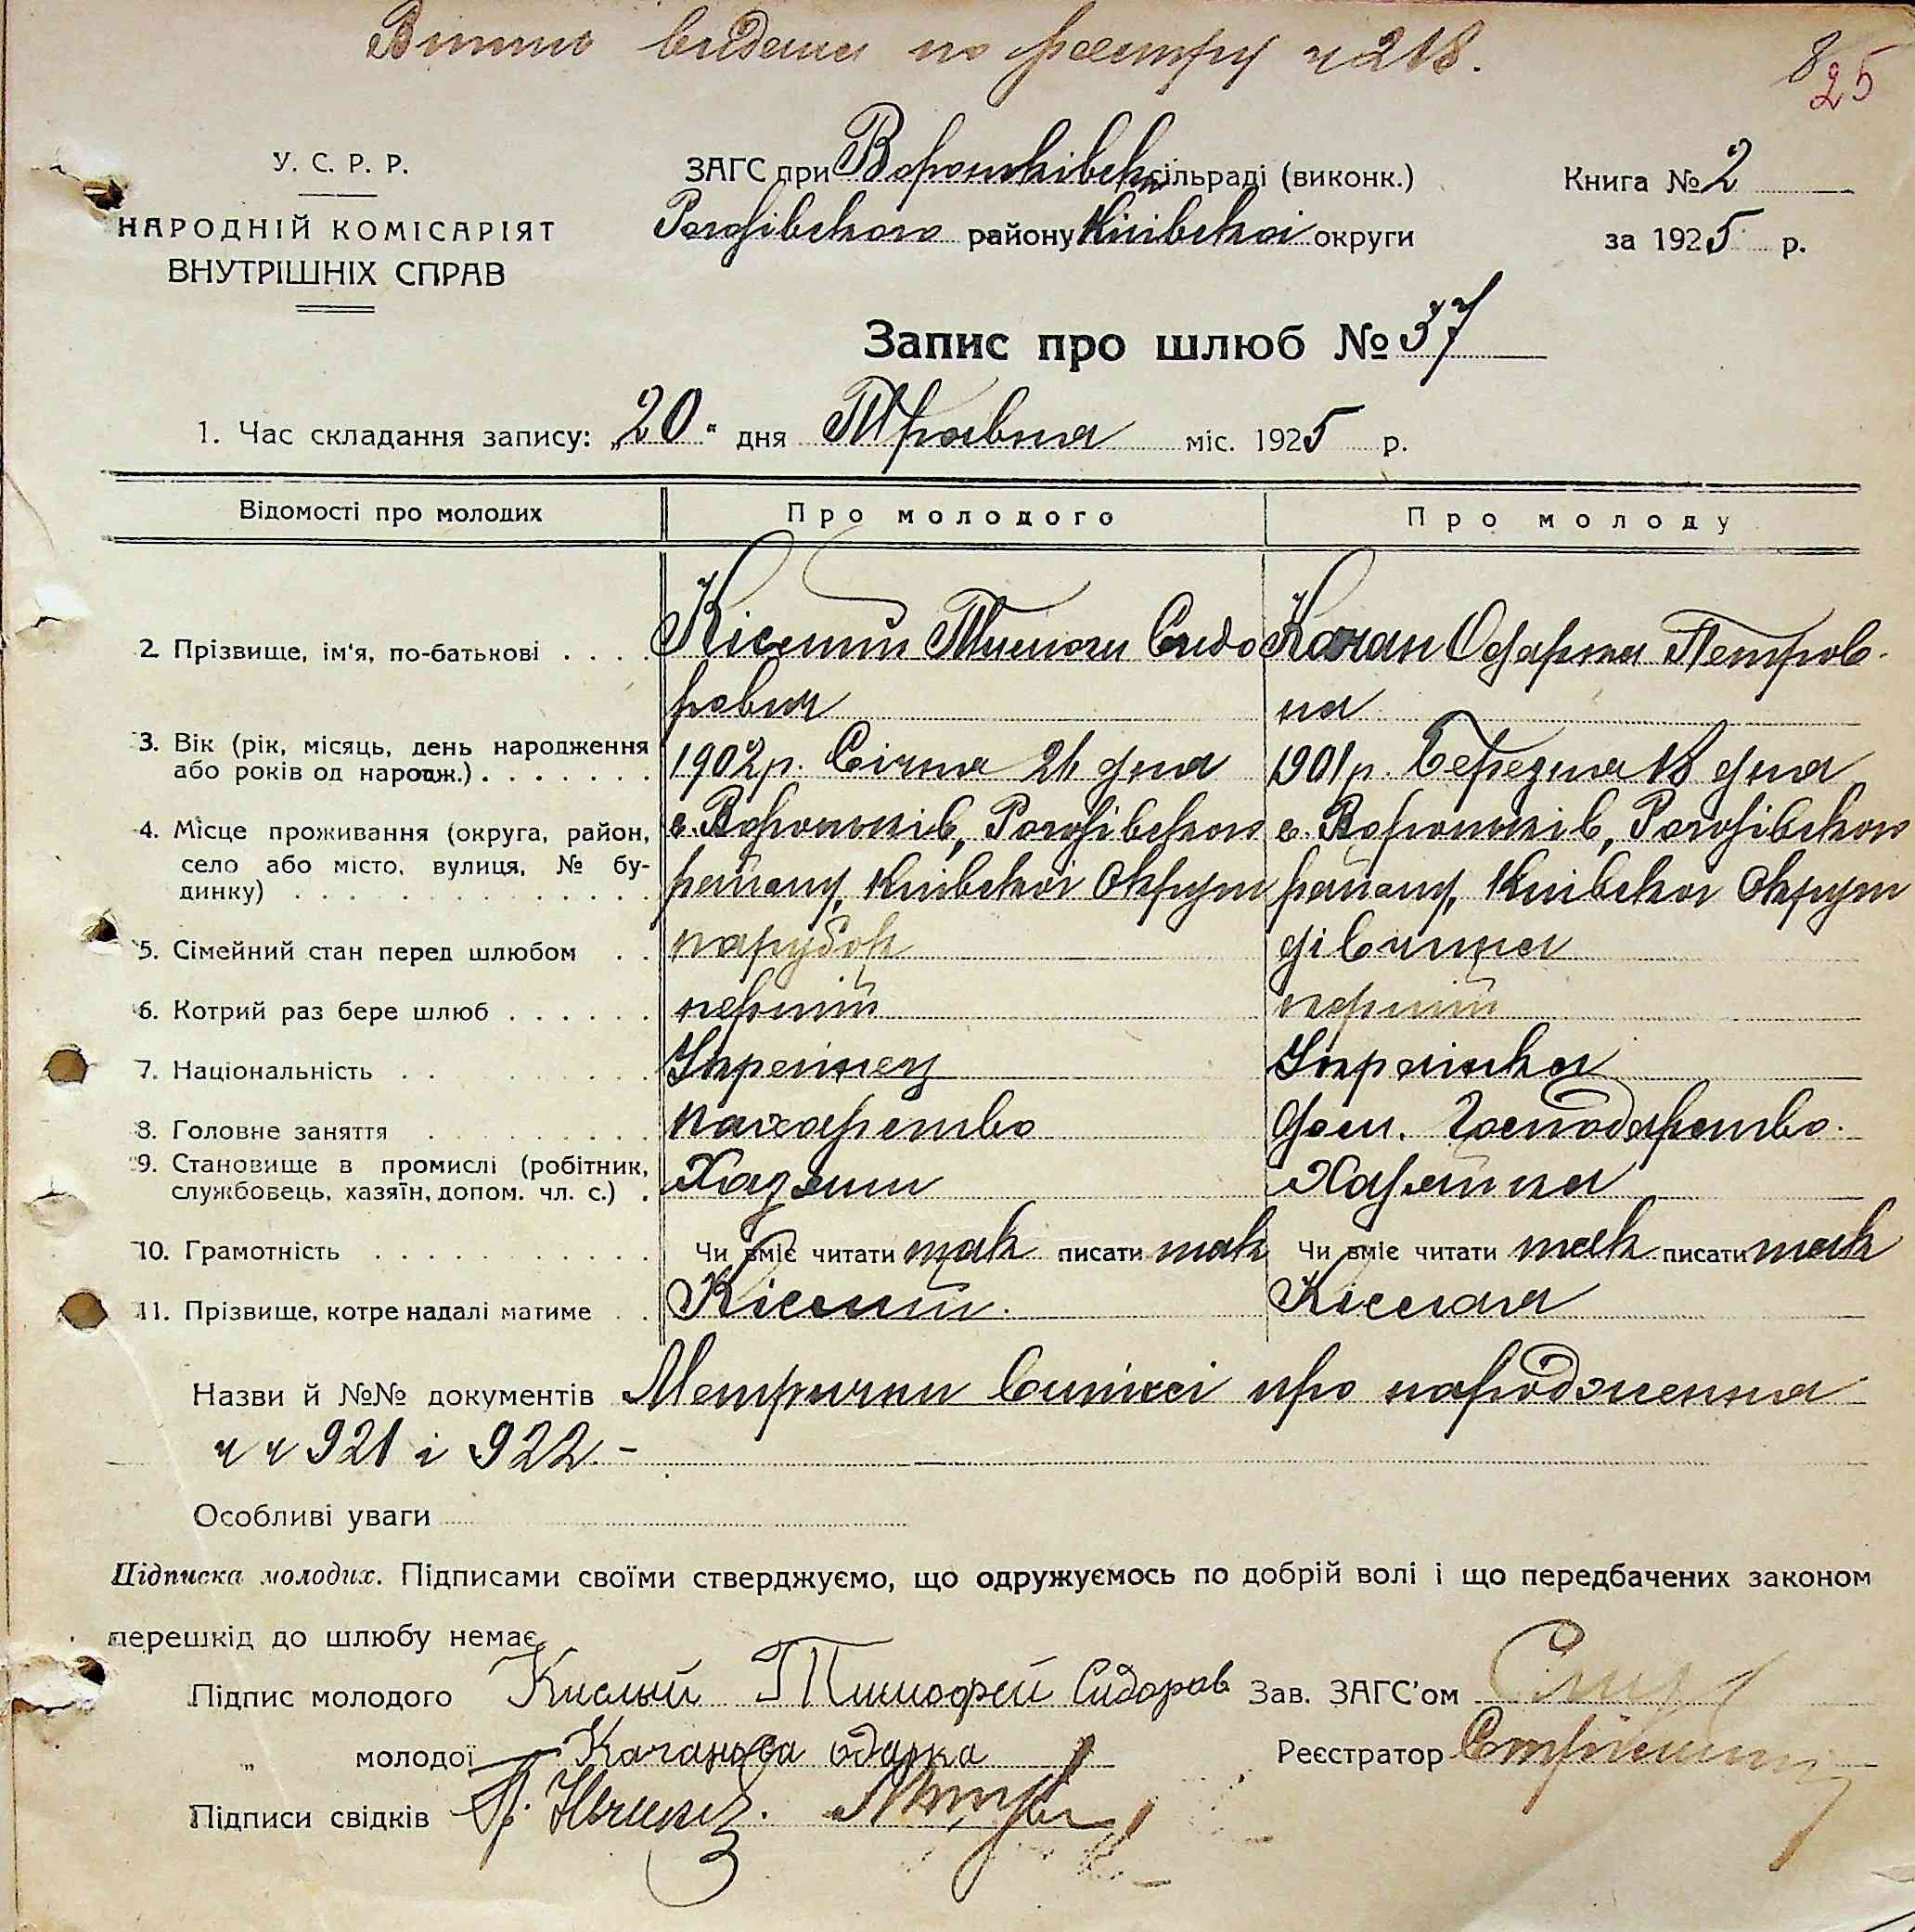 Витяг видано по реєстру ч 218.
8
25
У. С. Р. Р.
НАРОДНІЙ КОМІСАРІЯТ
ВНУТРІШНІХ СПРАВ
ЗАГС при Вороньківськ. сільраді (виконк.)
Рогозівського району Київської округи
Книга № 2
за 1925 р.
Запис про шлюб № 37
1. Час складання запису: „20" дня Травня міс. 1925 р.
Відомості про молодих Про молодого Про молоду
2. Прізвище, ім'я, по-батькові . . . . Кіслий Тимохи Сидо Качан Одарка Петров-
рович на
3. Вік (рік, місяць, день народження
або років од народж.) . . . . . . . 1902 р. Січня 21 дня 1901 р. Березня 18 дня
4. Місце проживання (округа, район, с. Вороньків, Рогозівського с. Вороньків, Рогозівського
село або місто, вулиця, № бу-
динку) . . . . . . . . . . . . . . району, Київської Округи району, Київської Округи
5. Сімейний стан перед шлюбом . . парубок дівчина
6. Котрий раз бере шлюб . . . . . . перший перший
7. Національність . . . . . . . . . . Українец Українка
8. Головне заняття . . . . . . . . . . пахарство дом. Господарство.
9. Становище в промислі (робітник,
службовець, хазяїн, допом. чл. с.) . Хазяин Хазяйка
10. Грамотність . . . . . . . . . . . . Чи вміє читати так писати так Чи вміє читати так писати так
11. Прізвище, котре надалі матиме . . Кіслий. Кіслая
Назви й №№ документів Метрични випісі про народження
ч ч 921 і 922.-
Особливі уваги
Підписка молодих. Підписами своїми стверджуємо, що одружуємось по добрій волі і що передбачених законом
перешкід до шлюбу немає.
Підпис молодого Кислый Тимофей Сидоров Зав. ЗАГС'ом
„ молодої Качанова одарка Реєстратор
Підписи свідків